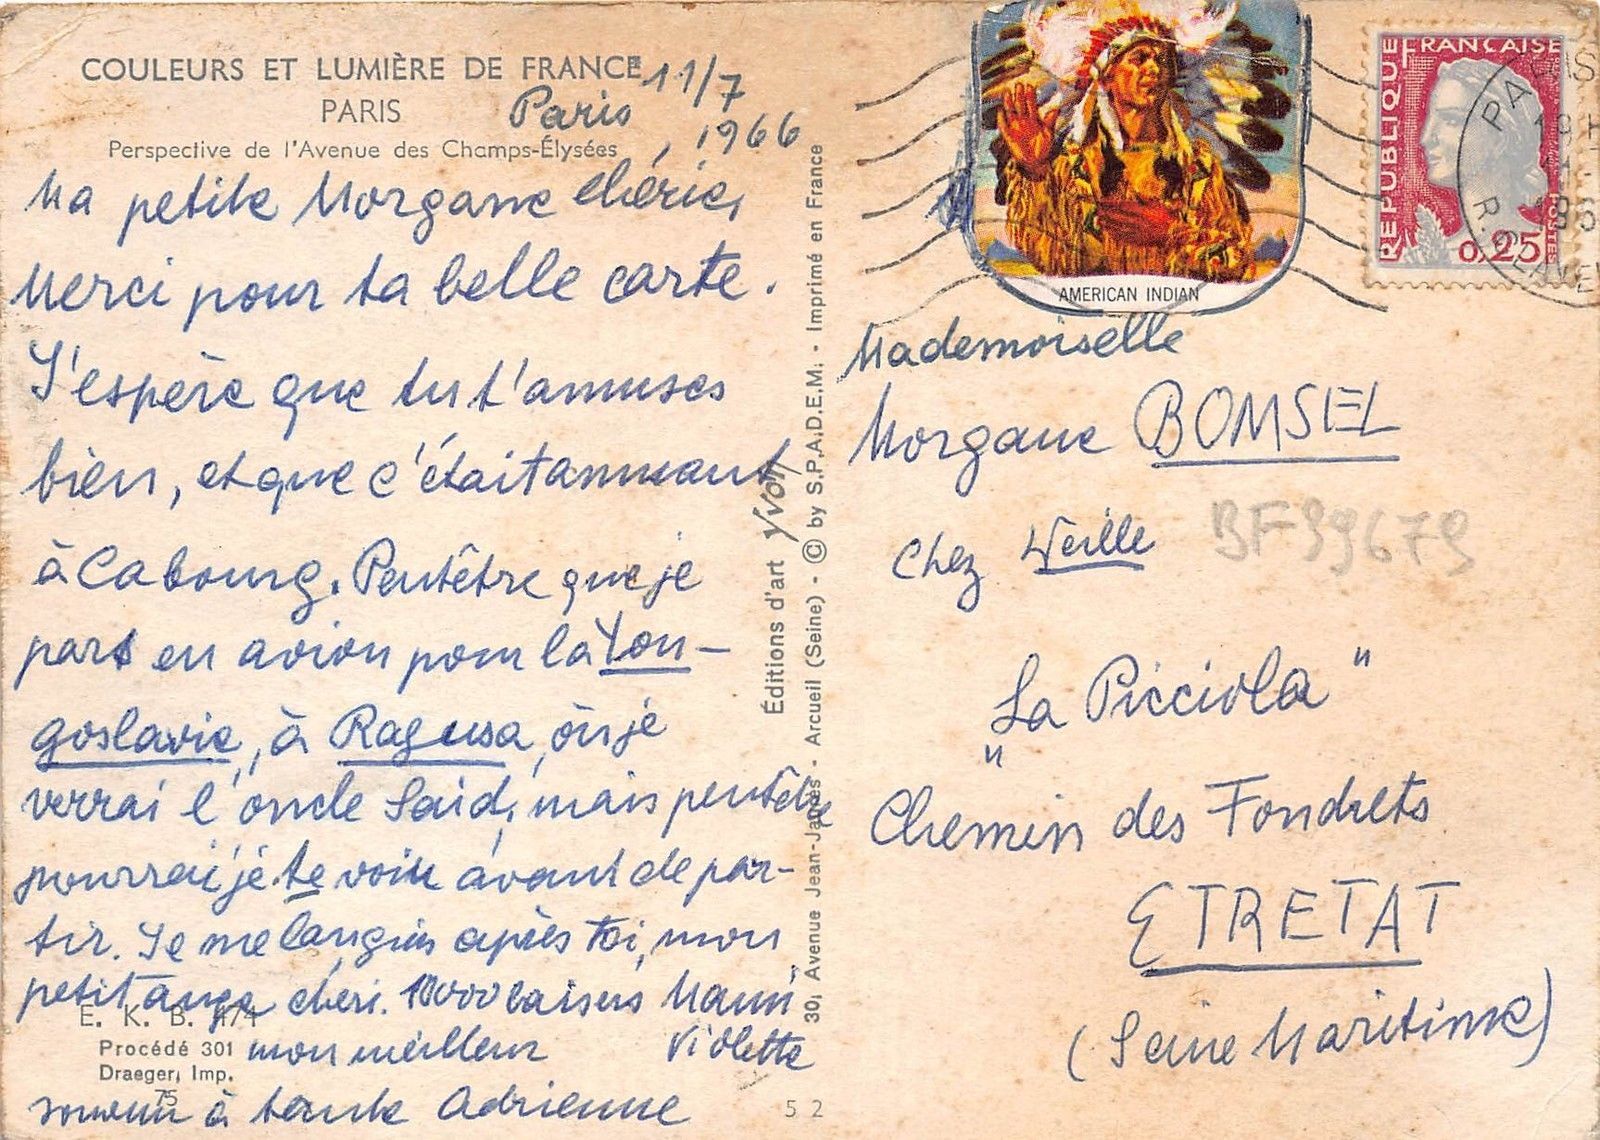 COULEURS ET LUMIÈRE DE FRANCE
PARIS
Perspective de l'Avenue des Champs-Élysées
Paris 11/7
1966
Ma petite Morgane chérie,
Merci pour ta belle carte.
J'espère que tu t'amuses
bien, et que c'était amusant
à Cabourg. Peutêtre que je
pars en avion pour la You-
goslavie, à Ragusa, où je
verrai l'oncle Said, mais peutêtre
pourrai je te voir avant de par-
tir. Je me languis après toi, mon
petit ange chéri. 10000 baisers Mami
Violette
mon meilleur
souvenir à tante Adrienne
E. K. B. 474
Procédé 301
Draeger, Imp.
75
52
Éditions d'art Yvon
30, Avenue Jean-Jaurès - Arcueil (Seine) - © by S.P.A.D.E.M. - Imprimé en France
AMERICAN INDIAN
RÉPUBLIQUE FRANÇAISE
0,25
POSTES
PARIS
Mademoiselle
Morgane BOMSEL
Chez Weille
BF99679
"La Picciola"
Chemin des Fondrets
ETRETAT
(Seine Maritime)